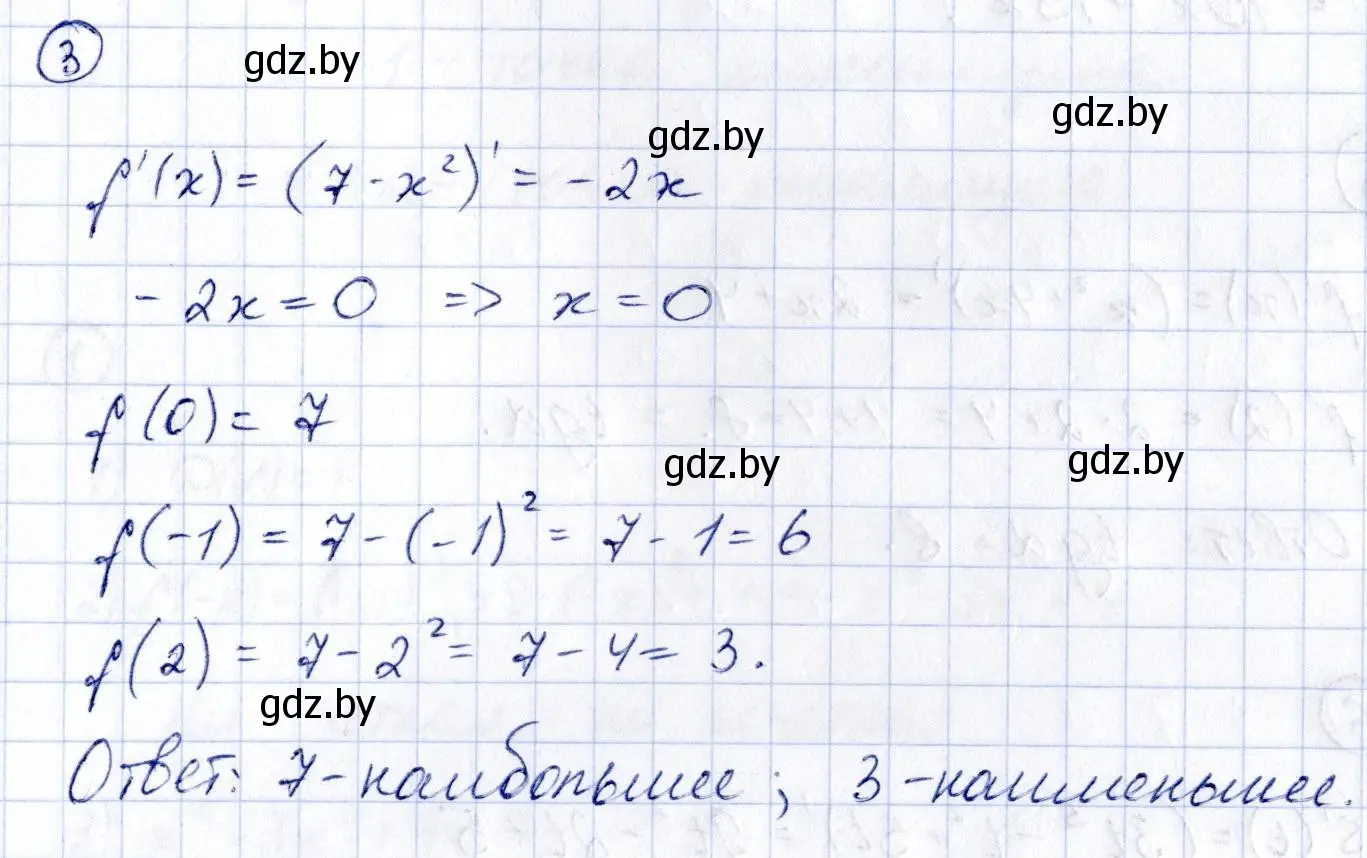 3
gdz.by
gdz.by
gdz.by
f'(x) = (7 - x²)' = -2x
-2x = 0 => x = 0
f(0) = 7
gdz.by
gdz.by
f(-1) = 7 - (-1)² = 7 - 1 = 6
f(2) = 7 - 2² = 7 - 4 = 3.
gdz.by
Ответ: 7 - наибольшее; 3 - наименьшее.